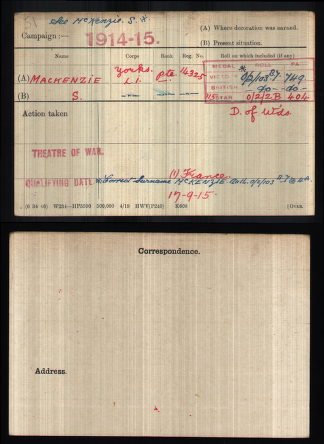 also McKenzie. S. X
Campaign :— 1914-15.
(A) Where decoration was earned.
(B) Present situation.
Name Corps Rank Reg. No. Roll on which included (if any)
MEDAL ROLL PA
(A) MACKENZIE Yorks. L.I. Pte 14325 VICTORY 749
(B) S. BRITISH —do— —do—
STAR O/2/2B 404
Action taken
D. of Wds.
THEATRE OF WAR.
(1) France.
QUALIFYING DATE
Correct Surname McKENZIE
17-9-15.
500,000 4/19 HWV(P240) K608
[OVER.
Correspondence.
Address.